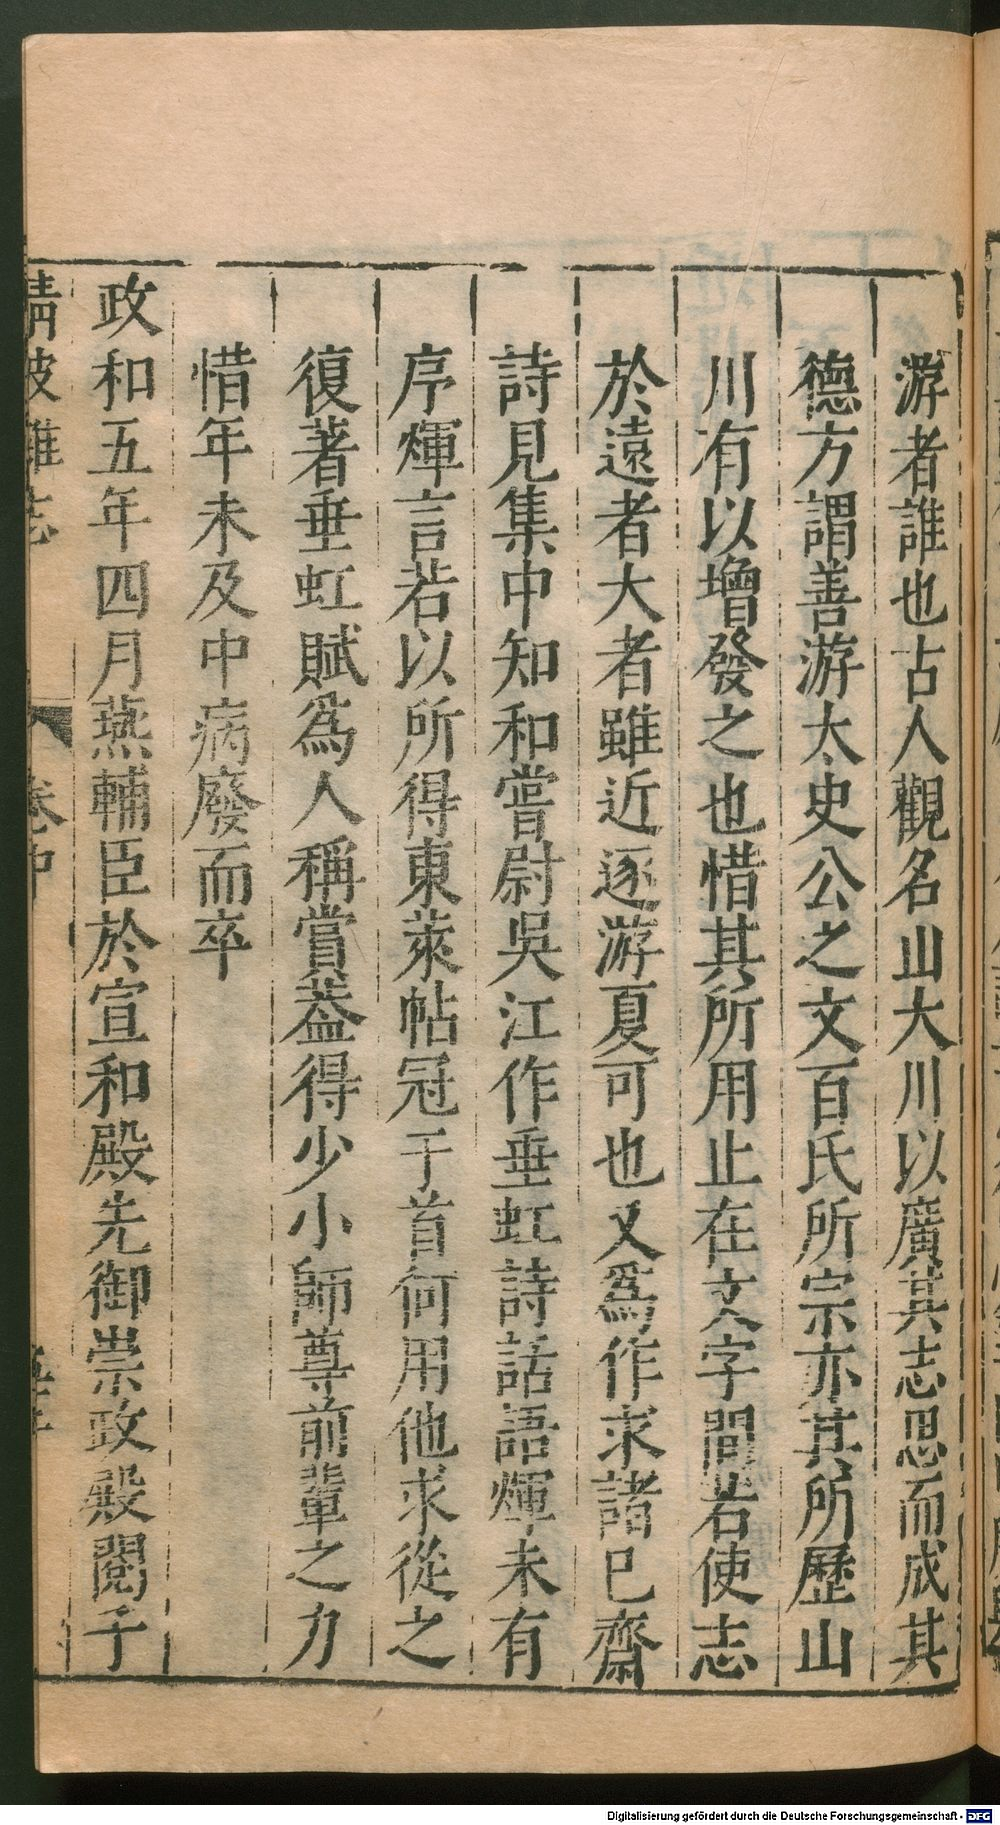 游者誰也占人觀名山大川以廣其志思而成其
德方謂善游太史公之文百氏所宗亦其所歷山
川有以增發之也惜其所用止在文字間若使志
於遠者大者雖近逐游夏可也又爲作求諸已齋
詩見集中知和嘗尉吳江作垂虹詩話語煇未有
序煇言若以所得東萊帖冠于首何用他求從之
復著垂虹賦爲人稱賞葢得少小師尊前輩之力
惜年未及中病廢而卒
政和五年四月燕輔臣於宣和殿先御崇政殿閱子
清波雜志
卷中
Digitalisierung gefördert durch die Deutsche Forschungsgemeinschaft - DFG